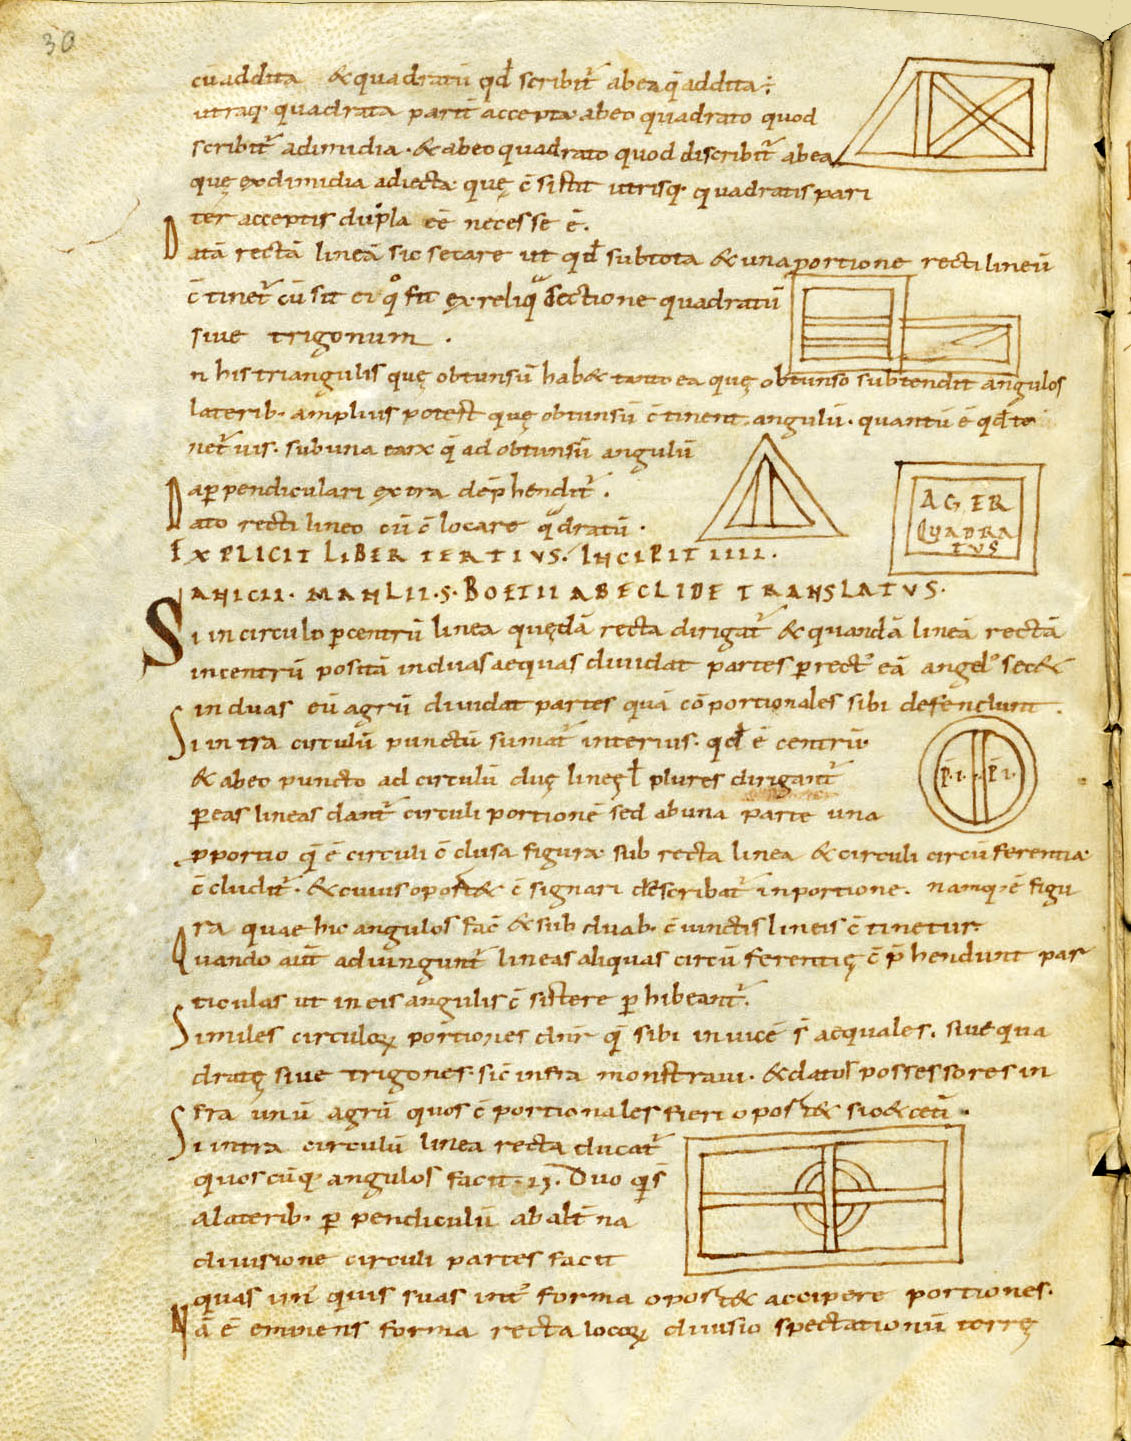 30
cū addita & quadratū qđ scribit̄ abea q̄ addita ÷
utraq· quadrata parit̄ accepta· abeo quadrato quod
scribit̄ adimidia · & abeo quadrato quod discribit̄ abea
quę exdimidia adiecta· quę c̄ sistit utrisq· quadratis pari
ter acceptis dupla eē necesse ē.
Datā rectā lineā sic secare ut qđ subtota & una portione recti lineū
c̄ tinet̄ cū sit ei qo fit ex reliqua sectione quadratū
sive trigonum .
n his triangulis quę obtunsū hab& tanto ea quę obtunso subtendit angulos
laterib· amplius potest quę obtunsū c̄ tinent angulū · quantū ē qđ te
net̄ uis · subuna earx q̄ ad obtunsū angulū
aꝑpendiculari extra dep̄hendit̄ .
Dato recti lineo cū c̄ locare qadratū ·
AGER
QUADRA
TUS
EXPLICIT LIBER TERTIVS. INCIPIT IIII.
ANICII. MANLII.S. BOETII ABECLIDE TRANSLATVS.
Si in circulo ꝑcentrū linea quędā recta dirigat̄ & quandā lineā rectā
incentrū positā induas aequas dividat partes ꝑrect' eā angel' sec&
in duas eū agrū dividat partes quā cōportionales sibi defendunt .
Si intra circulū punctū sumat̄ interius · qđ ē centrū·
& abeo puncto ad circulū duę lineę ł plures dirigant̄
ꝑeas lineas dant̄ circuli portionē sed abuna parte una
P·I· · P·I·
ꝓportio q̄ ē circuli c̄ clusa figura· sub recta linea & circuli circū ferentia·
c̄ cludit̄ · & cuius oport& c̄ signari describat̄ inportione. namq· ē figu
ra quae hic angulos fac̄ & sub duab· c̄ iunctis lineis c̄ tinetur·
Quando aut̄ adiungunt̄ lineas aliquas circū ferentię c̄ p̄hendunt par
ticulas ut in eis angulis c̄ sistere ꝑhibeant̄.
Similes circuloꝝ portiones dn̄r q̄ sibi invicē s̄ aequales. sive qua
dratę sive trigones· sic̄ infra monstravi · & datos possessores in
fra unū agrū quos c̄ portionales fieri oport& sic & cet̄i .
Si intra circulū linea recta ducat̄
quoscūq· angulos facit · Duo q̄s
alaterib· ꝑ pendiculū ab alt̄ na
divisione circuli partes facit
quas un' quis suas int̄ forma oport& accipere portiones.
Nā ē emviens forma recta locoꝝ divisio spectationū terrę